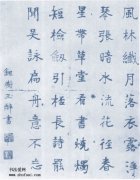 風林纖月落衣露淨
琴張暗水流花徑春
星帶草堂檢書燒燭
短看劍引杯長詩罷
聞吳詠扁舟意不忘